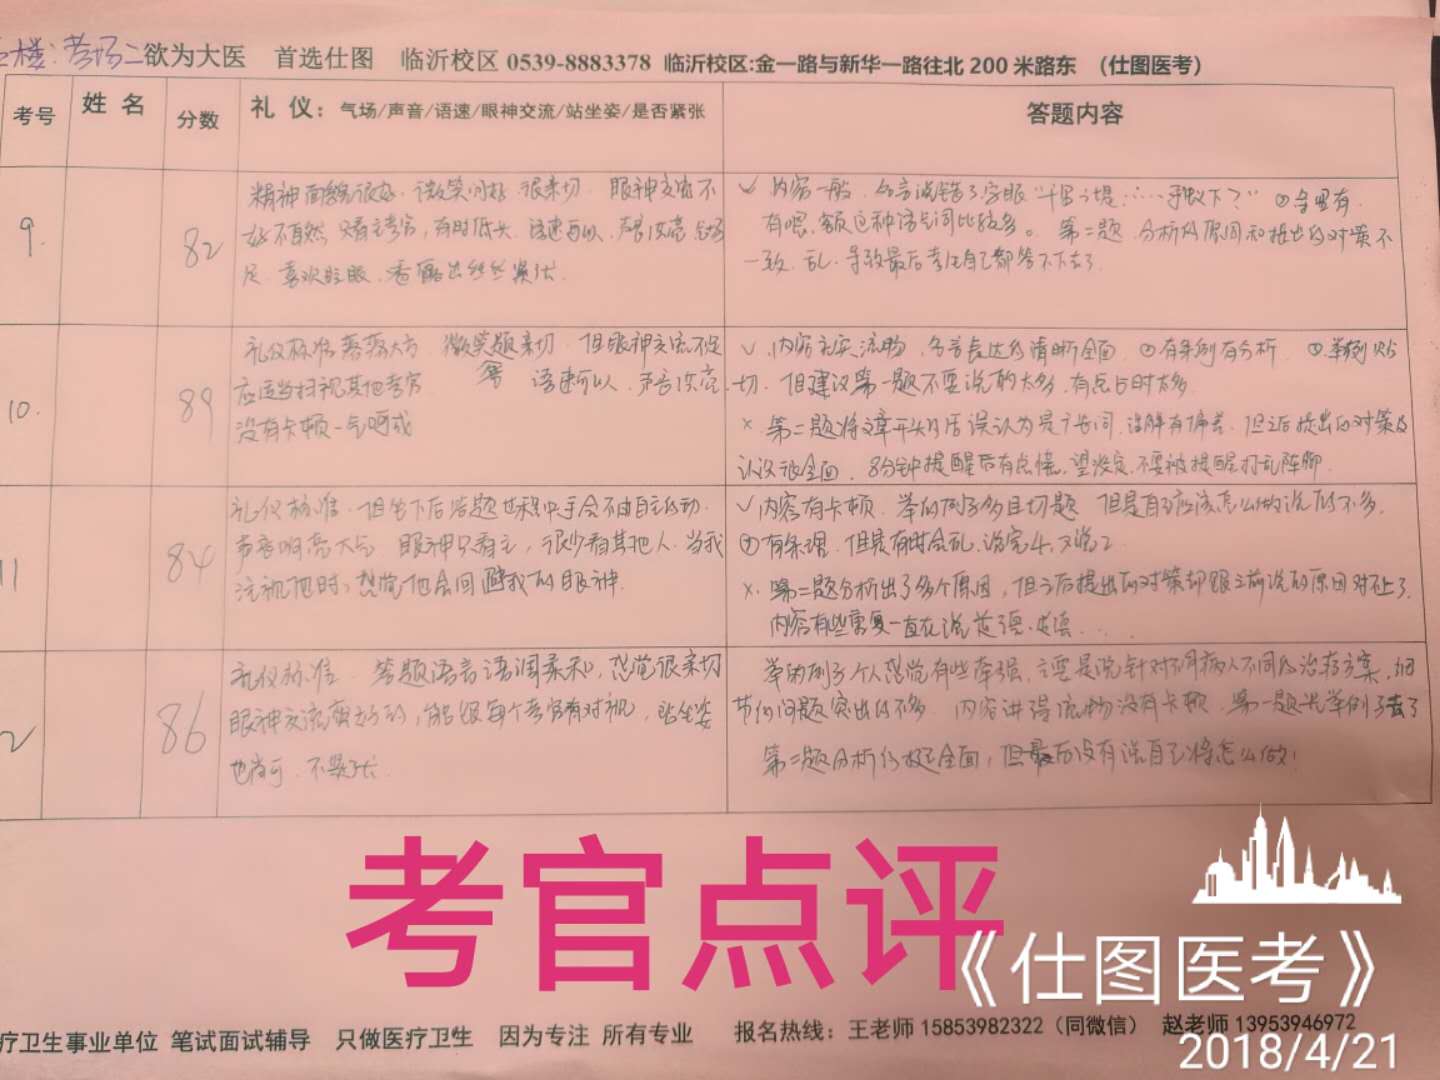 楼:考场二 欲为大医 首选仕图 临沂校区 0539-8883378 临沂校区:金一路与新华一路往北 200 米路东 （仕图医考）
考号 姓 名 分数 礼 仪：气场/声音/语速/眼神交流/站坐姿/是否紧张 答题内容
9. 82
精神面貌很好.微笑问好 很亲切. 眼神交流不
好不自然 只看主考官,有时低头.语速可以.声音洪亮
足.喜欢眨眼.看露出丝丝紧张.
✓ 内容一般.名言说错了字眼"千里之堤……于蚁下?" ②会里有
有嗯、额这种语气词比较多。第二题.分析的原因和提出的对策不
一致.乱.导致最后考生自己都答不下去了.
10. 89
礼仪标准 落落大方 微笑答题亲切.但眼神交流不足
应适当扫视其他考官 语速可以.声音洪亮
没有卡顿一气呵成
✓.内容充实流畅.名言表达的清晰全面.②有条例有分析 ③举例贴
切.但建议第一题不要说的太多.有点占时太多.
× 第二题将文章开头月后误认为是个长词.注解有偏差.但之后提出的对策及
认识很全面.8分钟提醒后有点慌,望淡定.不要被提醒打乱阵脚.
11 84
礼仪标准.但坐下后答题过程中手会不由自主的动.
声音响亮大气 眼神只看主,很少看其他人.当我
注视他时,感觉他会回避我的眼神.
✓内容有卡顿.举的例子多且切题 但是自己应该怎么做说的不多.
②有条理.但是有时会乱.说完4.又说2
×.第二题分析出了多个原因,但之后提出的对策却跟之前说的原因对不上了.
内容有些重复一直在说
2 86
礼仪标准.答题语言语调柔和,感觉很亲切
眼神交流蛮好的,能跟每个考官有对视,站坐姿
也尚可.不紧张.
举的例子个人感觉有些牵强,主要是说针对不同病人不同的治疗方案,细
节的问题突出的不多.内容讲得流畅没有卡顿.第一题光举例子去了
第二题分析的挺全面,但最后没有说自己将怎么做!
考官点评
《仕图医考》
疗卫生事业单位 笔试面试辅导 只做医疗卫生 因为专注 所有专业 报名热线：王老师 15853982322（同微信） 赵老师 13953946972
2018/4/21